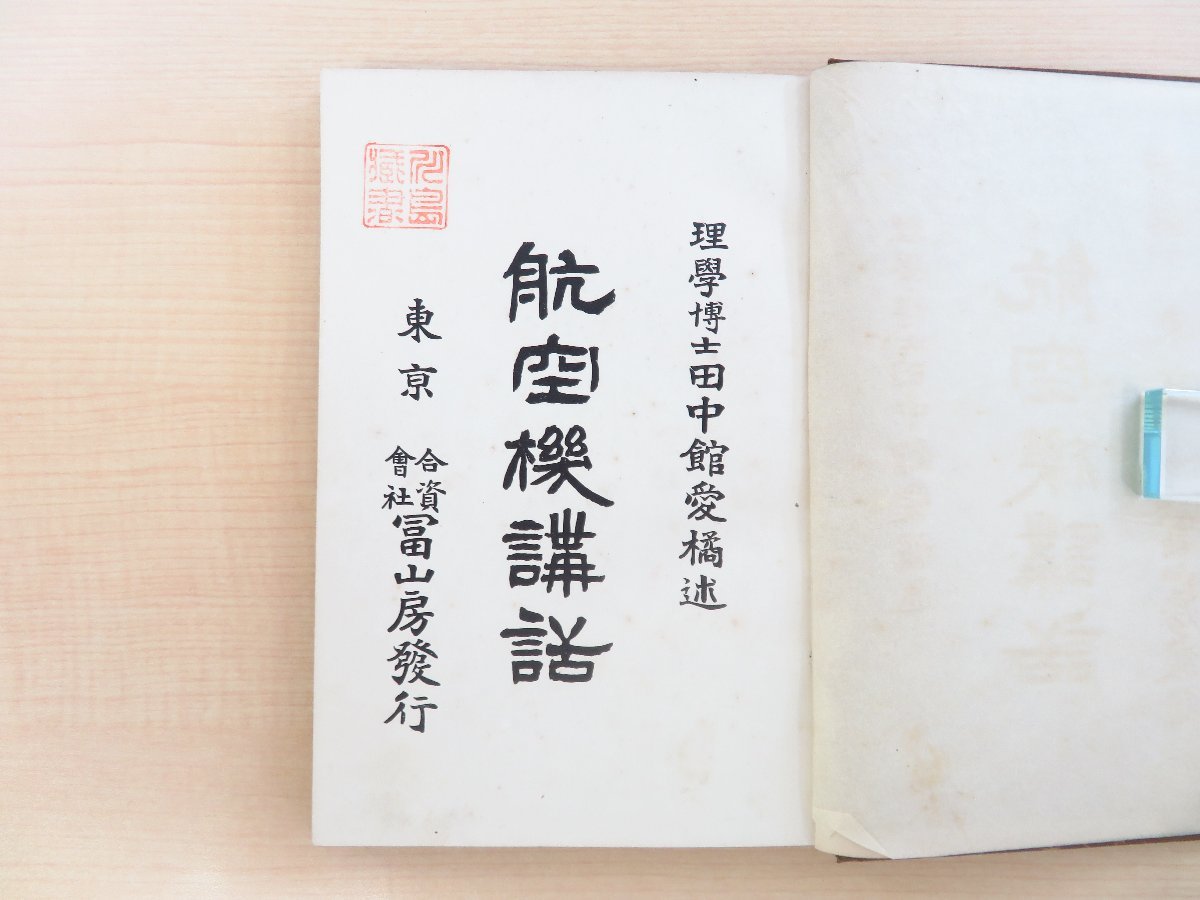 理學博士田中館愛橘述
航空機講話
東京 合資會社冨山房發行
藏書